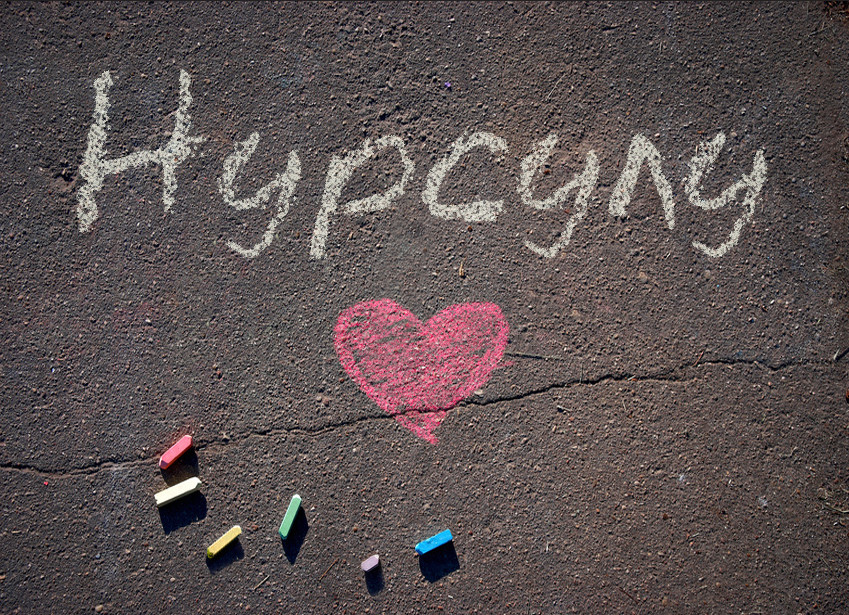 Нурсулу